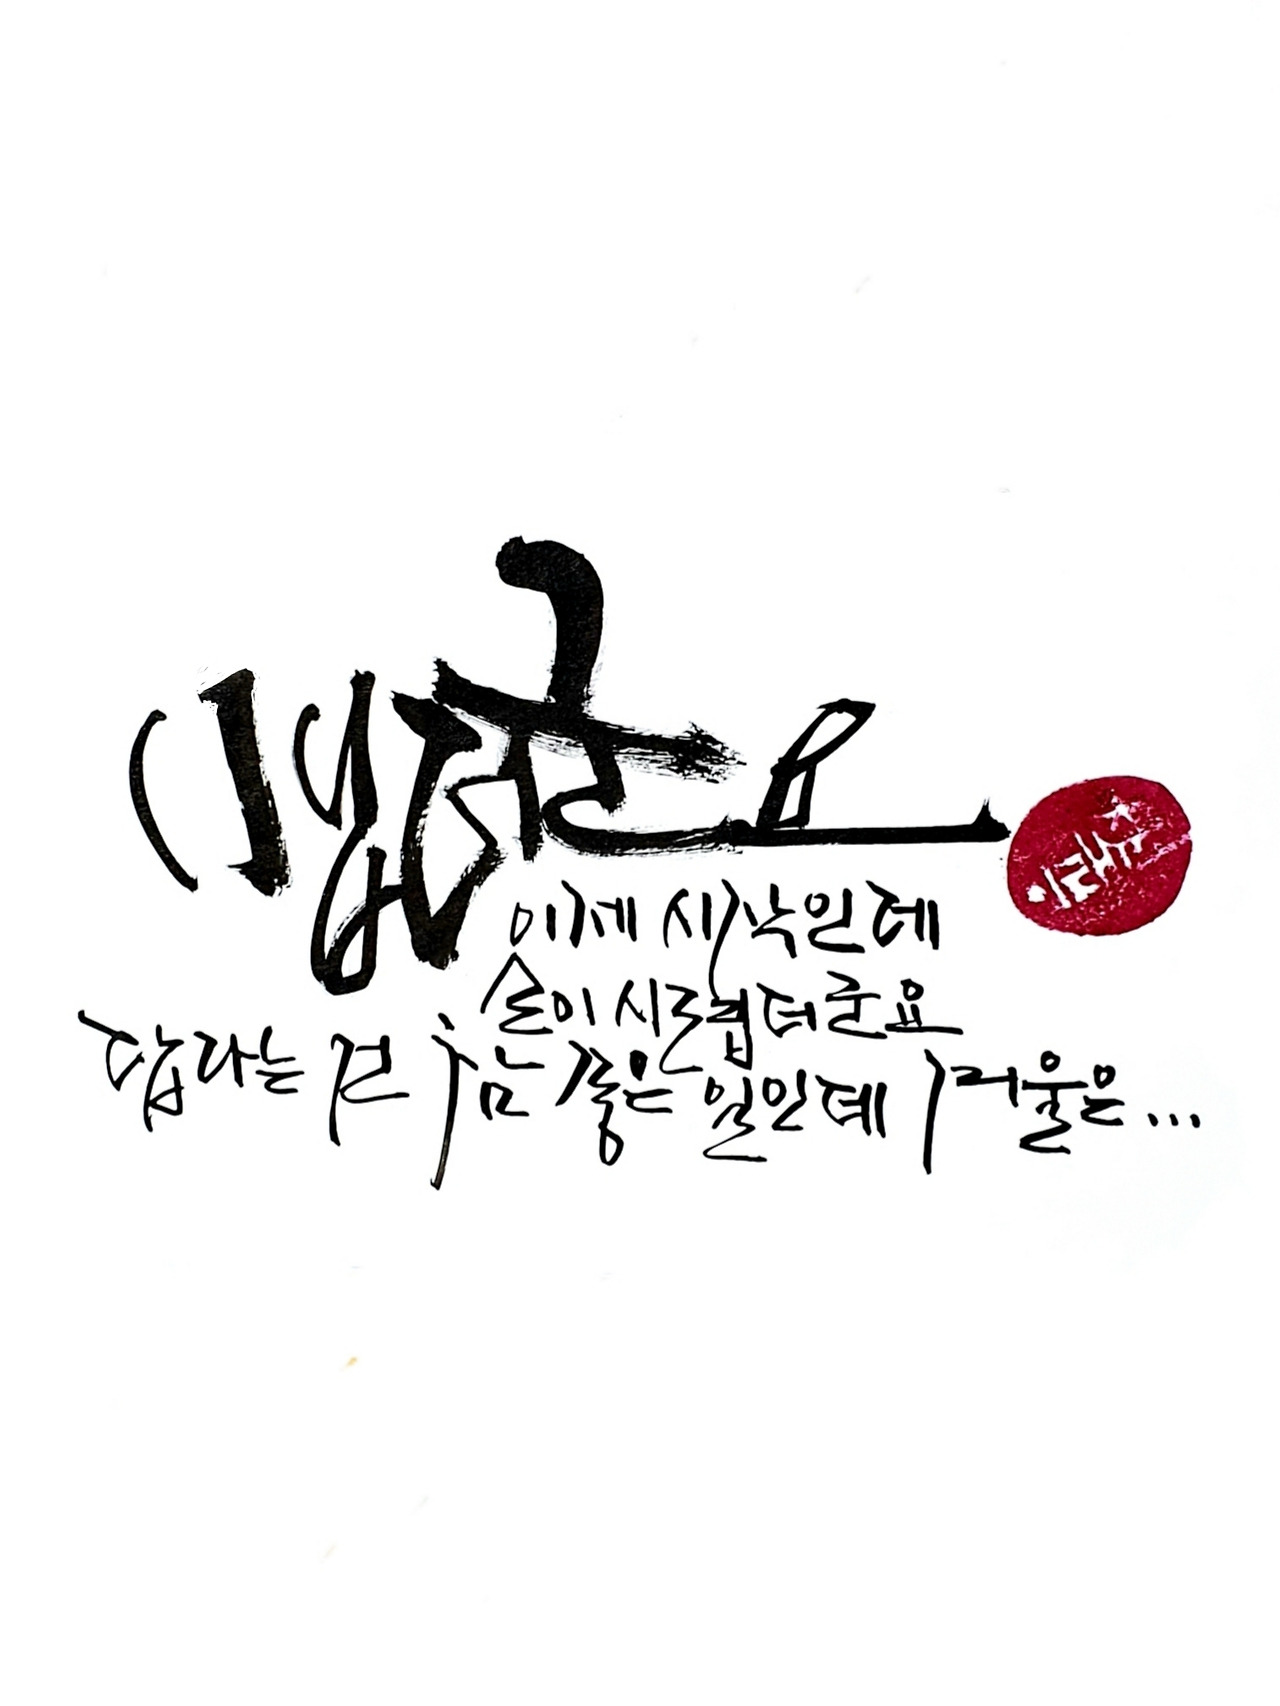 이제 시작인데
손이 시렵더군요
답다는 건 참 좋은 일인데 겨울은...